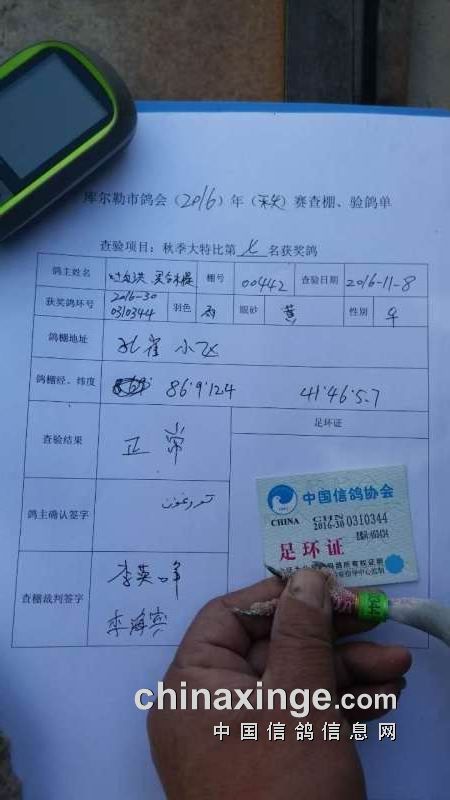 库尔勒市鸽会（2016）年（秋）赛查棚、验鸽单
查验项目：秋季大特比第 七 名获奖鸽
鸽主姓名 棚号 00442 查验日期 2016-11-8
获奖鸽环号 2016-30 0310344 羽色 雨 眼砂 黄 性别
鸽棚地址 孔雀 小区
鸽棚经、纬度 86°9'12.4 41°46'5.7
查验结果 正常 足环证
鸽主确认签字
查棚裁判签字 李英峰
李海宾
中国信鸽协会
CHINA CHN
2016-30 0310344
足环证
chinaxinge.com
中国信鸽信息网